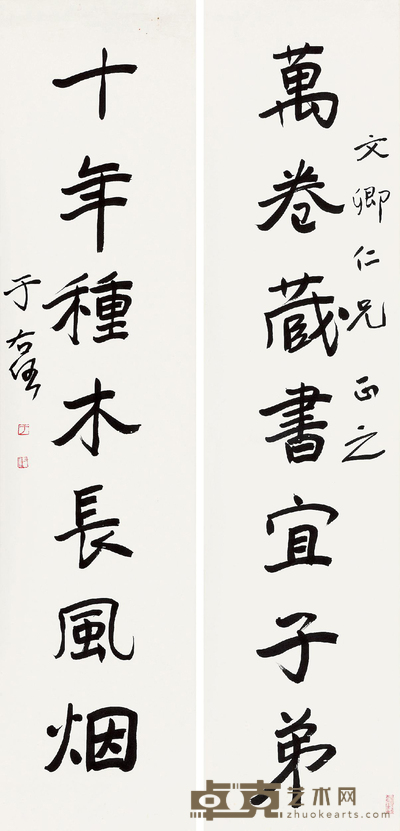 文卿仁兄正之
萬卷藏書宜子弟
十年種木長風烟
于右任
卓克艺术网
www.zhuokearts.com